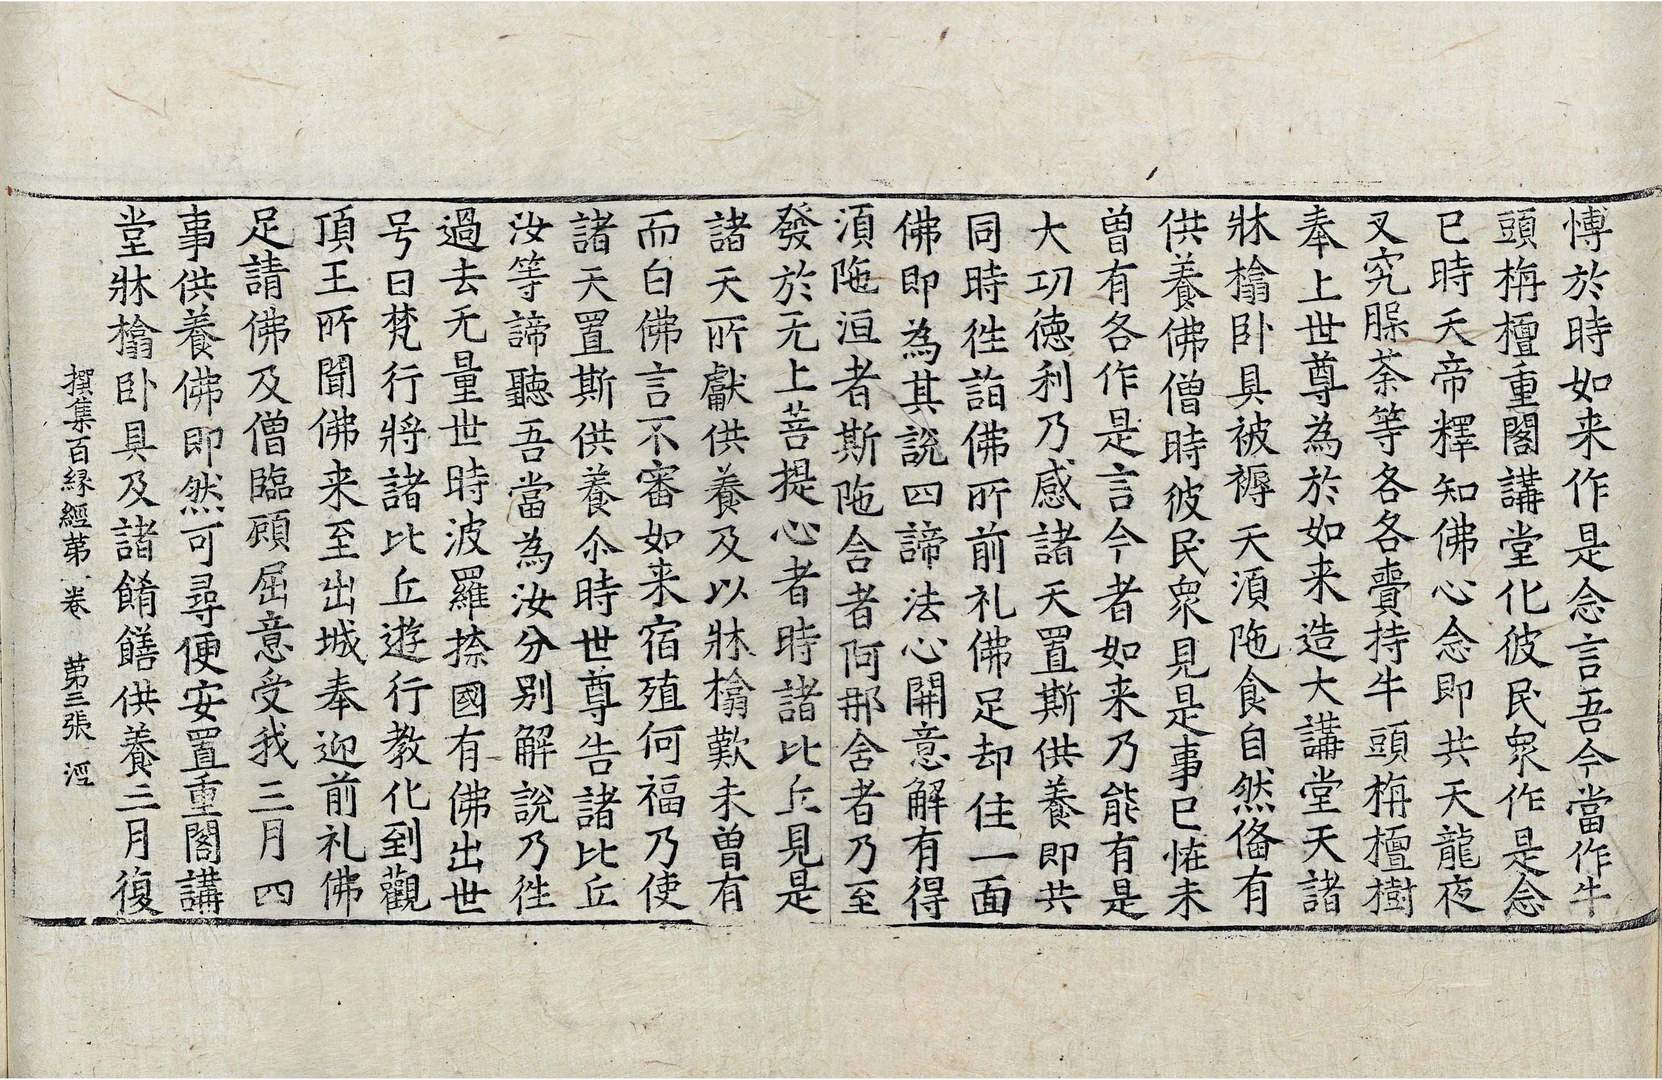 愽於時如来作是念言吾今當作牛
頭栴檀重閣講堂化彼民衆作是念
已時天帝釋知佛心念即共天龍夜
叉究荼等各各賷持牛頭栴檀樹
奉上世尊為於如来造大講堂天諸
牀榻卧具被褥天湏陁食自然俻有
供養佛僧時彼民衆見是事已恠未
曽有各作是言今者如来乃能有是
大功德利乃感諸天置斯供養即共
同時徃詣佛所前礼佛足却住一面
佛即為其說四諦法心開意解有得
湏陁洹者斯陁含者阿那含者乃至
發於无上菩提心者時諸比丘見是
諸天所獻供養及以牀榻歎未曽有
而白佛言不審如来宿殖何福乃使
諸天置斯供養尒時世尊告諸比丘
汝等諦聽吾當為汝分别解說乃徃
過去无量世時波羅㮈國有佛出世
号曰梵行將諸比丘遊行教化到觀
頂王所聞佛来至出城奉迎前礼佛
足請佛及僧臨顧屈意受我三月四
事供養佛即然可尋便安置重閣講
堂牀榻卧具及諸餚饍供養三月復
撰集百縁經苐一卷 苐三張 泾